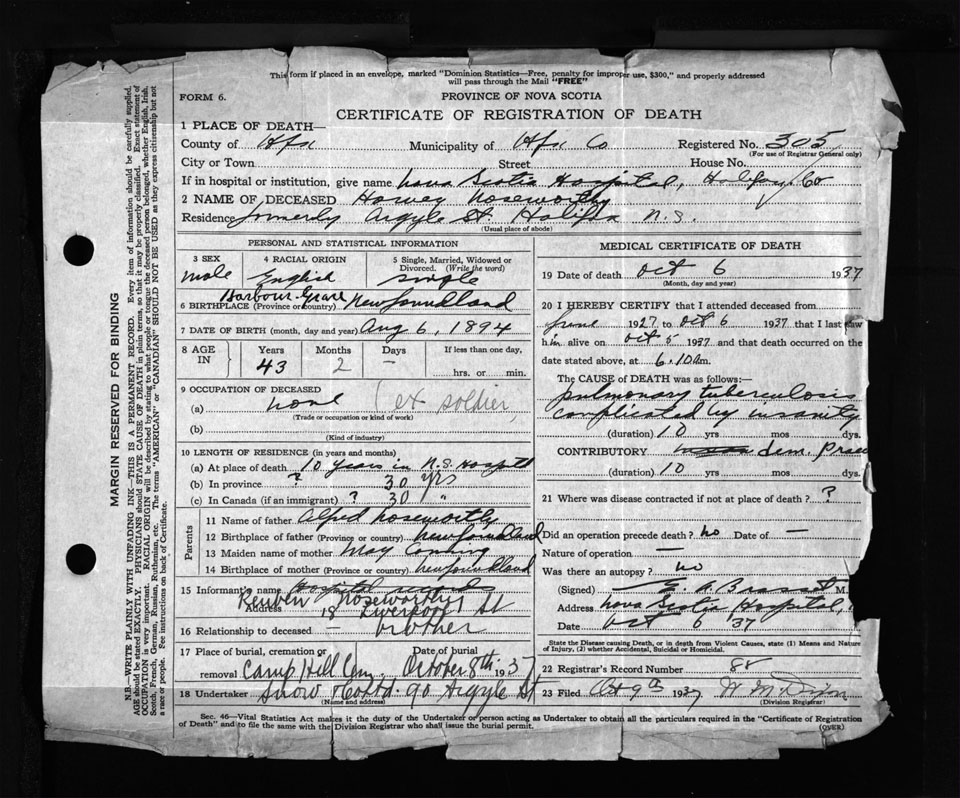 This form if placed in an envelope, marked "Dominion Statistics—Free, penalty for improper use, $300," and properly addressed
will pass through the Mail "FREE"
FORM 6.
PROVINCE OF NOVA SCOTIA
CERTIFICATE OF REGISTRATION OF DEATH
1 PLACE OF DEATH—
County of Hfx Municipality of Hfx Co Registered No. 305
(For use of Registrar General only)
City or Town Street House No.
If in hospital or institution, give name Nova Scotia Hospital, Halifax Co
2 NAME OF DECEASED Harvey Noseworthy
Residence formerly Argyle St Halifax N.S.
(Usual place of abode)
PERSONAL AND STATISTICAL INFORMATION
3 SEX 4 RACIAL ORIGIN 5 Single, Married, Widowed or
Divorced. (Write the word)
male English single
Harbour Grace
6 BIRTHPLACE (Province or country) Newfoundland
7 DATE OF BIRTH (month, day and year) Aug 6, 1894
8 AGE IN Years Months Days If less than one day,
43 2 — hrs. or min.
9 OCCUPATION OF DECEASED
(a) none (ex soldier)
(Trade or occupation or kind of work)
(b)
(Kind of industry)
10 LENGTH OF RESIDENCE (in years and months)
(a) At place of death 10 years in N.S. Hospital
(b) In province ? 30 yrs
(c) In Canada (if an immigrant) ? 30 "
Parents
11 Name of father Alfred Noseworthy
12 Birthplace of father (Province or country) Newfoundland
13 Maiden name of mother May
14 Birthplace of mother (Province or country) Newfoundland
15 Informant's name Hospital records
Reuben Noseworthy
Address 18 Liverpool St
16 Relationship to deceased — brother
17 Place of burial, cremation or Date of burial
removal Camp Hill Cem. October 8th 1937
18 Undertaker Snow & Co Ltd. 90 Argyle St
(Name and address)
MEDICAL CERTIFICATE OF DEATH
19 Date of death Oct 6 1937
(Month, day and year)
20 I HEREBY CERTIFY that I attended deceased from
June 1927 to Oct 6 1937 that I last saw
him alive on Oct 5 1937 and that death occurred on the
date stated above, at 6.10 am.
The CAUSE OF DEATH was as follows:—
pulmonary tuberculosis
complicated by insanity
(duration) 10 yrs mos dys.
CONTRIBUTORY dem. Praec
(duration) 10 yrs mos dys.
21 Where was disease contracted if not at place of death? ?
Did an operation precede death? no Date of —
Nature of operation —
Was there an autopsy? no
(Signed) M.
Address Nova Scotia Hospital,
Date Oct 6 37
State the Disease causing Death, or in death from Violent Causes, state (1) Means and Nature
of Injury, (2) whether Accidental, Suicidal or Homicidal.
22 Registrar's Record Number
23 Filed Oct 9th 1937
(Division Registrar)
Sec. 46—Vital Statistics Act makes it the duty of the Undertaker or person acting as Undertaker to obtain all the particulars required in the "Certificate of Registration
of Death" and to file the same with the Division Registrar who shall issue the burial permit.
(OVER)
MARGIN RESERVED FOR BINDING
N.B.—WRITE PLAINLY WITH UNFADING INK—THIS IS A PERMANENT RECORD. Every item of information should be carefully supplied.
AGE should be stated EXACTLY. PHYSICIANS should STATE CAUSE OF DEATH in plain terms, so that it may be properly classified. Exact statement of
OCCUPATION is very important. RACIAL ORIGIN will be described by stating to what people or tongue the deceased person belonged, whether English, Irish,
Scotch, French, German, Russian, Ruthenian, etc. The terms "AMERICAN" or "CANADIAN" SHOULD NOT BE USED as they express citizenship but not
a race or people. See instructions on back of Certificate.